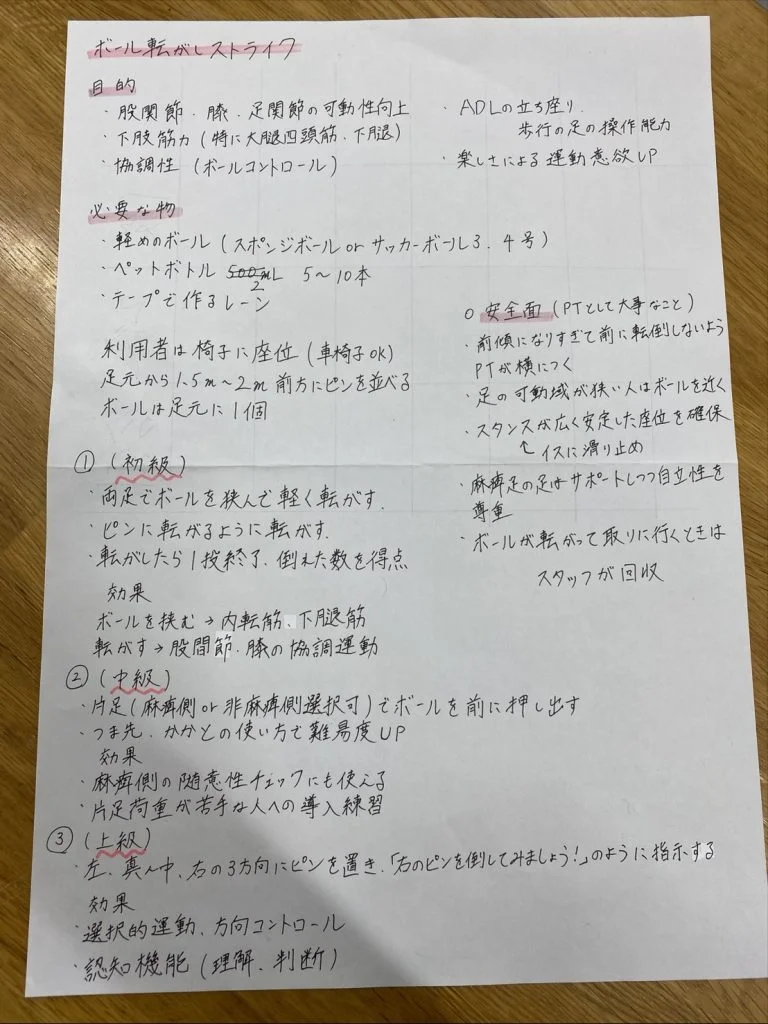 ボール転がしストライク
目的
・股関節、膝、足関節の可動性向上
・下肢筋力(特に大腿四頭筋、下腿)
・協調性(ボールコントロール)
・ADLの立ち座り、
歩行の足の操作能力
・楽しさによる運動意欲UP
必要な物
・軽めのボール(スポンジボール or サッカーボール3、4号)
・ペットボトル 500mL 5〜10本
2
・テープで作るレーン
利用者は椅子に座位(車椅子OK)
足元から1.5m〜2m前方にピンを並べる
ボールは足元に1個
○安全面(PTとして大事なこと)
・前傾になりすぎて前に転倒しないよう
PTが横につく
・足の可動域が狭い人はボールを近く
・スタンスが広く安定した座位を確保
↑イスに滑り止め
・麻痺足の足はサポートしつつ自立性を
尊重
・ボールが転がって取りに行くときは
スタッフが回収
①(初級)
・両足でボールを挟んで軽く転がす、
・ピンに転がるように転がす、
・転がしたら1投終了、倒れた数を得点
効果
ボールを挟む→内転筋、下腿筋
転がす→股間節、膝の協調運動
②(中級)
・片足(麻痺側or非麻痺側選択可)でボールを前に押し出す
・つま先、かかとの使い方で難易度UP
効果
・麻痺側の随意性チェックにも使える
・片足荷重が苦手な人への導入練習
③(上級)
・左、真ん中、右の3方向にピンを置き、「右のピンを倒してみましょう!」のように指示する
効果
・選択的運動、方向コントロール
・認知機能(理解、判断)